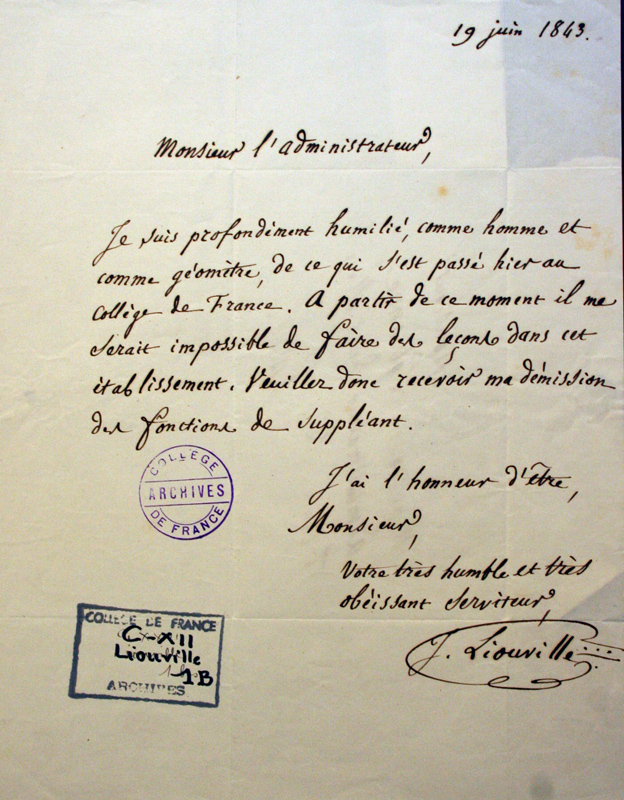 19 juin 1843.
Monsieur l'administrateur,
Je suis profondément humilié, comme homme et
comme géomètre, de ce qui s'est passé hier au
Collège de France. A partir de ce moment il me
serait impossible de faire des leçons dans cet
établissement. Veuillez donc recevoir ma démission
des fonctions de suppléant.
J'ai l'honneur d'être,
Monsieur,
Votre très humble et très
obéissant serviteur,
J. Liouville
COLLÈGE
ARCHIVES
DE FRANCE
COLLÈGE DE FRANCE
C-XII
Liouville
1B
ARCHIVES